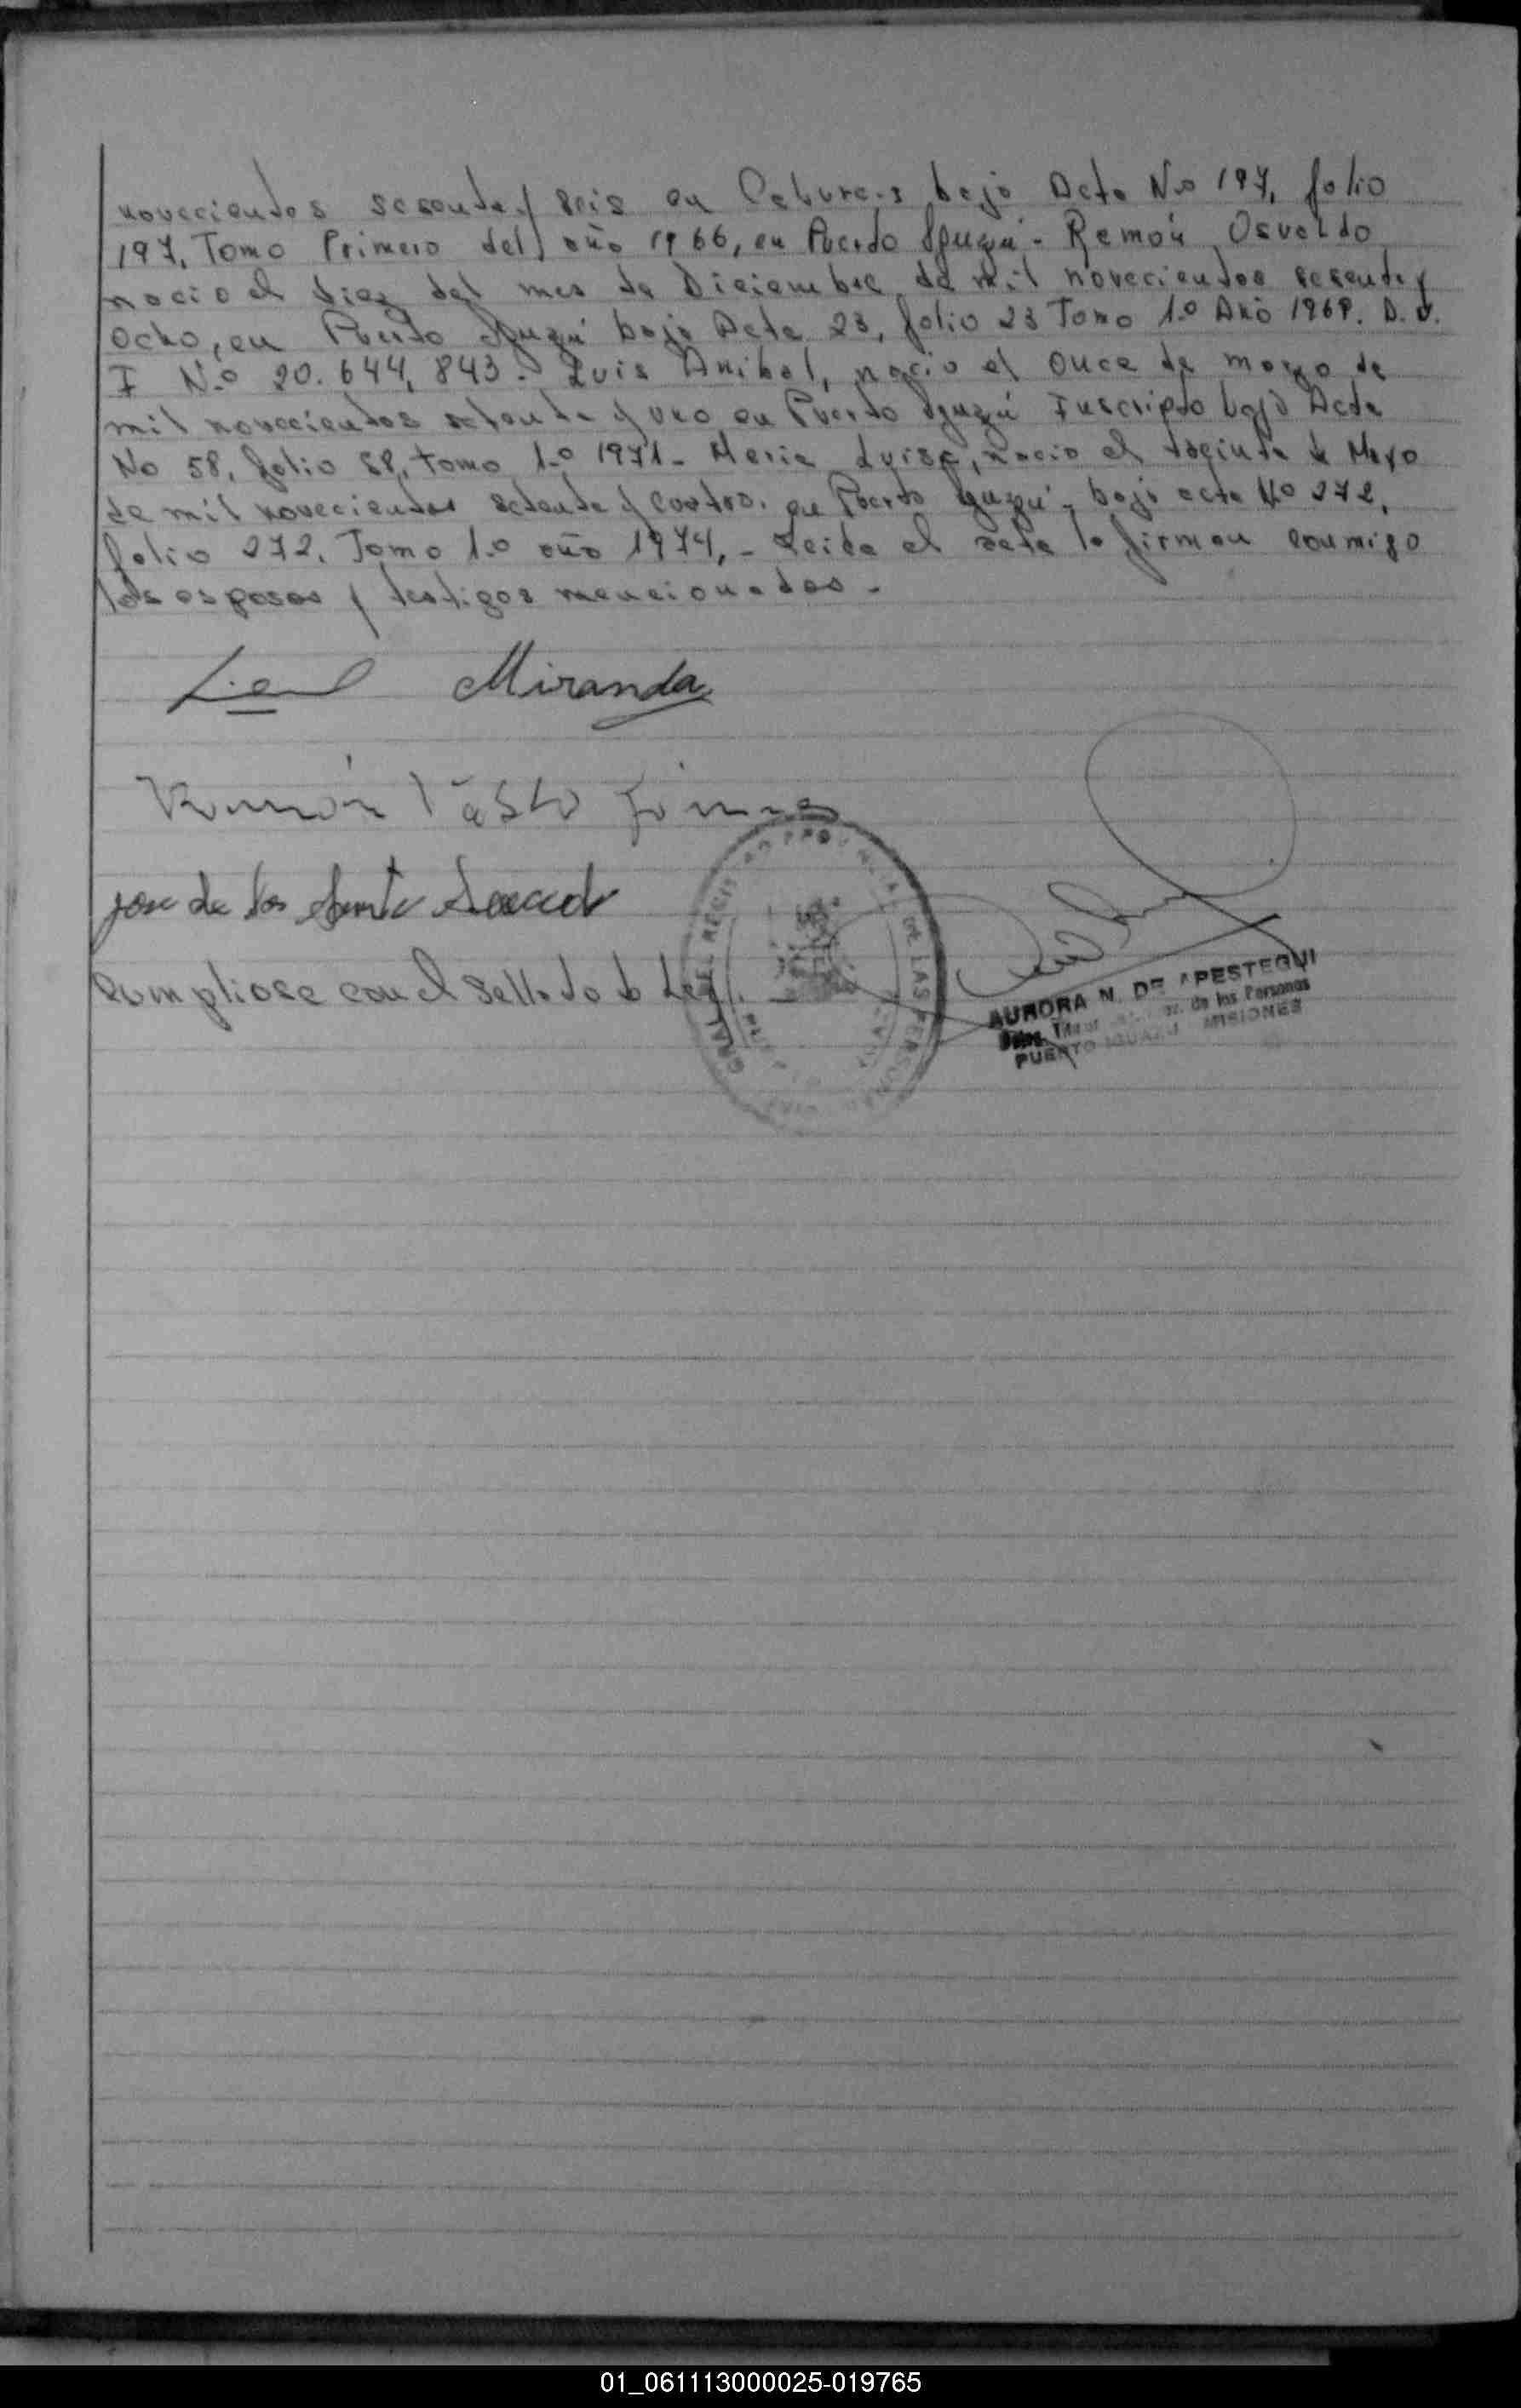 novecientos sesenta y seis en Cabure-i bajo Acta No 197, folio
197, Tomo Primero del año 1966, en Puerto Iguazú - Ramón Osvaldo
nacio el diez del mes de Diciembre de mil novecientos sesenta y
ocho, en Puerto Iguazú bajo Acta 23, folio 23 Tomo 1.o Año 1969. D.
I N.o 20.644,843. Luis Anibal, nacio el once de marzo de
mil novecientos setenta y uno en Puerto Iguazú Inscripto bajo Acta
No 58, folio 58, tomo 1.o 1971 - Maria Luisa, nacio el treinta de Mayo
de mil novecientos setenta y cuatro. en Puerto Iguazú - bajo acta No 272,
folio 272. Tomo 1.o año 1974, - Leida el acta la firman conmigo
los esposos y testigos mencionados -
Miranda
Ramón
jose de los
Cumpliose con el sellado de Ley. -
GRAL. DEL REGIS PROVINCIAL DE LAS PERSONAS
AURORA N. DE APESTEGUI
de las Personas
PUERTO IGUAZU MISIONES
01_061113000025-019765